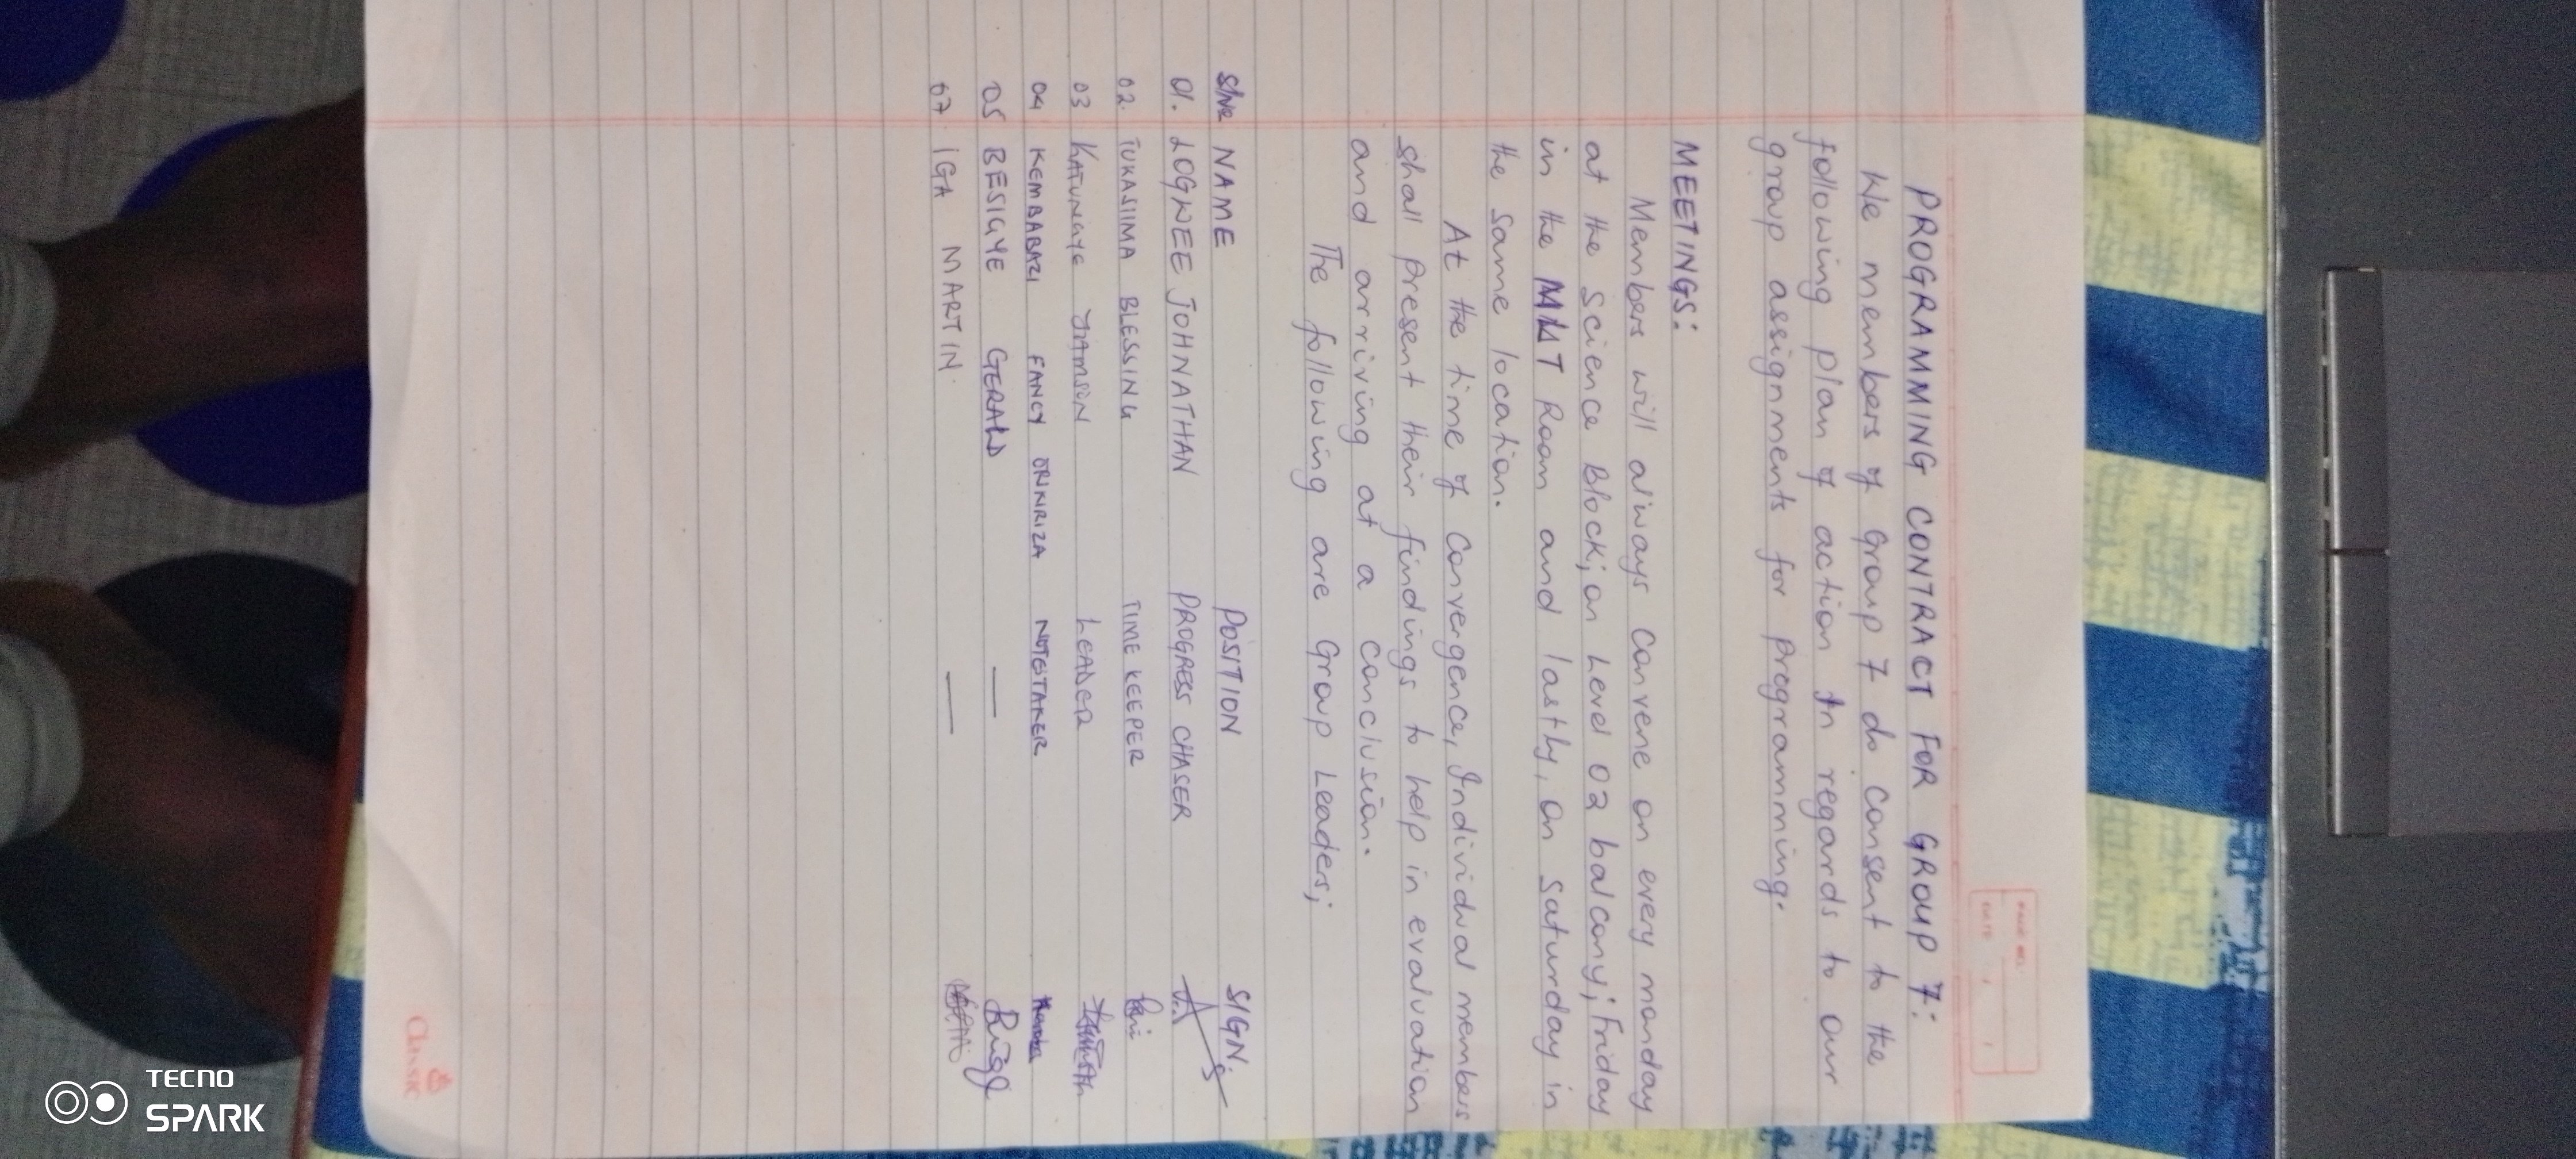 PAGE NO.
DATE
PROGRAMMING CONTRACT FOR GROUP 7:
We members of Group 7 do consent to the
following plan of action in regards to our
group assignments for programming.
MEETINGS:
Members will always convene on every monday
at the Science Block, on Level 02 balcony; Friday
in the Room and lastly, on Saturnday in
the same location.
At the time of Convergence, Individual members
shall present their findings to help in evaluation
and arriving at a conclusion.
The following are Group Leaders;
NAME POSITION SIGN.
01. LOGNEE JOHNATHAN PROGRESS CHASER
02. TUKASIIMA BLESSING TIME KEEPER
03 KATUNGYE JAMSON LEADER
04 KEMBABAZI FANCY NOTETAKER
05 BESIGYE GERALD —
07 IGA MARTIN. —
Classic
TECNO
SPARK